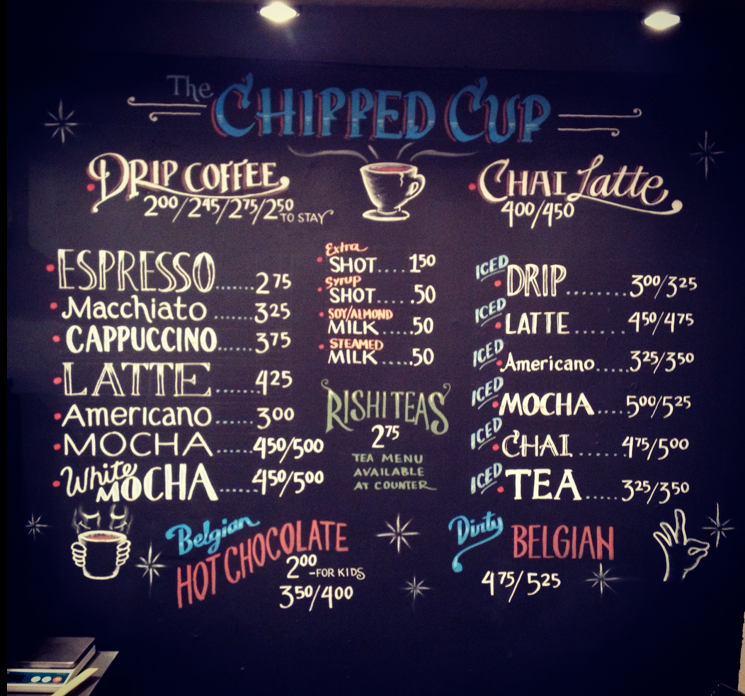 The CHIPPED CUP
DRIP COFFEE
200/245/275/250 TO STAY
CHAI Latte
400/450
ESPRESSO......275
Macchiato.....325
CAPPUCCINO.....375
LATTE.....425
Americano.....300
MOCHA.....450/500
White MOCHA.....450/500
Extra
SHOT....150
Syrup
SHOT....50
SOY/ALMOND
MILK....50
STEAMED
MILK....50
RISHI TEAS
275
TEA MENU
AVAILABLE
AT COUNTER
ICED DRIP........300/325
ICED LATTE.......450/475
ICED Americano.....325/350
ICED MOCHA....500/525
ICED CHAI.....475/500
ICED TEA.....325/350
Belgian
HOT CHOCOLATE
200 -FOR KIDS
350/400
Dirty BELGIAN
475/525